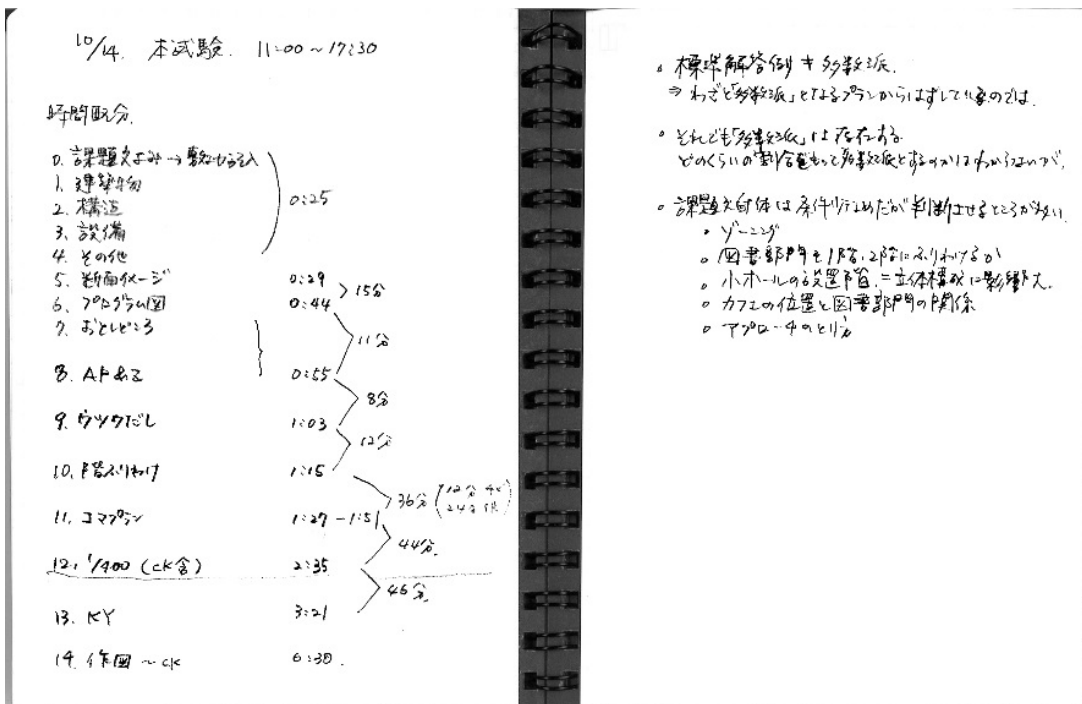 10/14. 本試験. 11:00~17:30
時間配分.
0. 課題文よみ→
1. 建築物
2. 構造
3. 設備
4. その他
0:25
5. 断面イメージ 0:29
15分
6. プログラム図 0:44
7. おとしどころ
11分
8. AP 0:55
8分
9. ウツワだし 1:03
12分
10. 階ふりわけ 1:15
36分 (12分
24分
11. コマプラン 1:27-1:51
44分.
12. 1/400 (ck含) 2:35
46分.
13. KY 3:21
14. 作図~ck 6:30.
。標準解答例≠多数派.
⇒わざと「多数派」となるプランからはずしているのでは.
。それでも「多数派」は存在する
どのくらいの割合をもって多数派とするのかはわからないが.
。課題文自体は条件少なめだが判断させるところが多い.
。ゾーニング
。図書部門を1階、2階にふりわけるか
。小ホールの設置階.=立体構成に影響大.
。カフェの位置と図書部門の関係
。アプローチのとり方